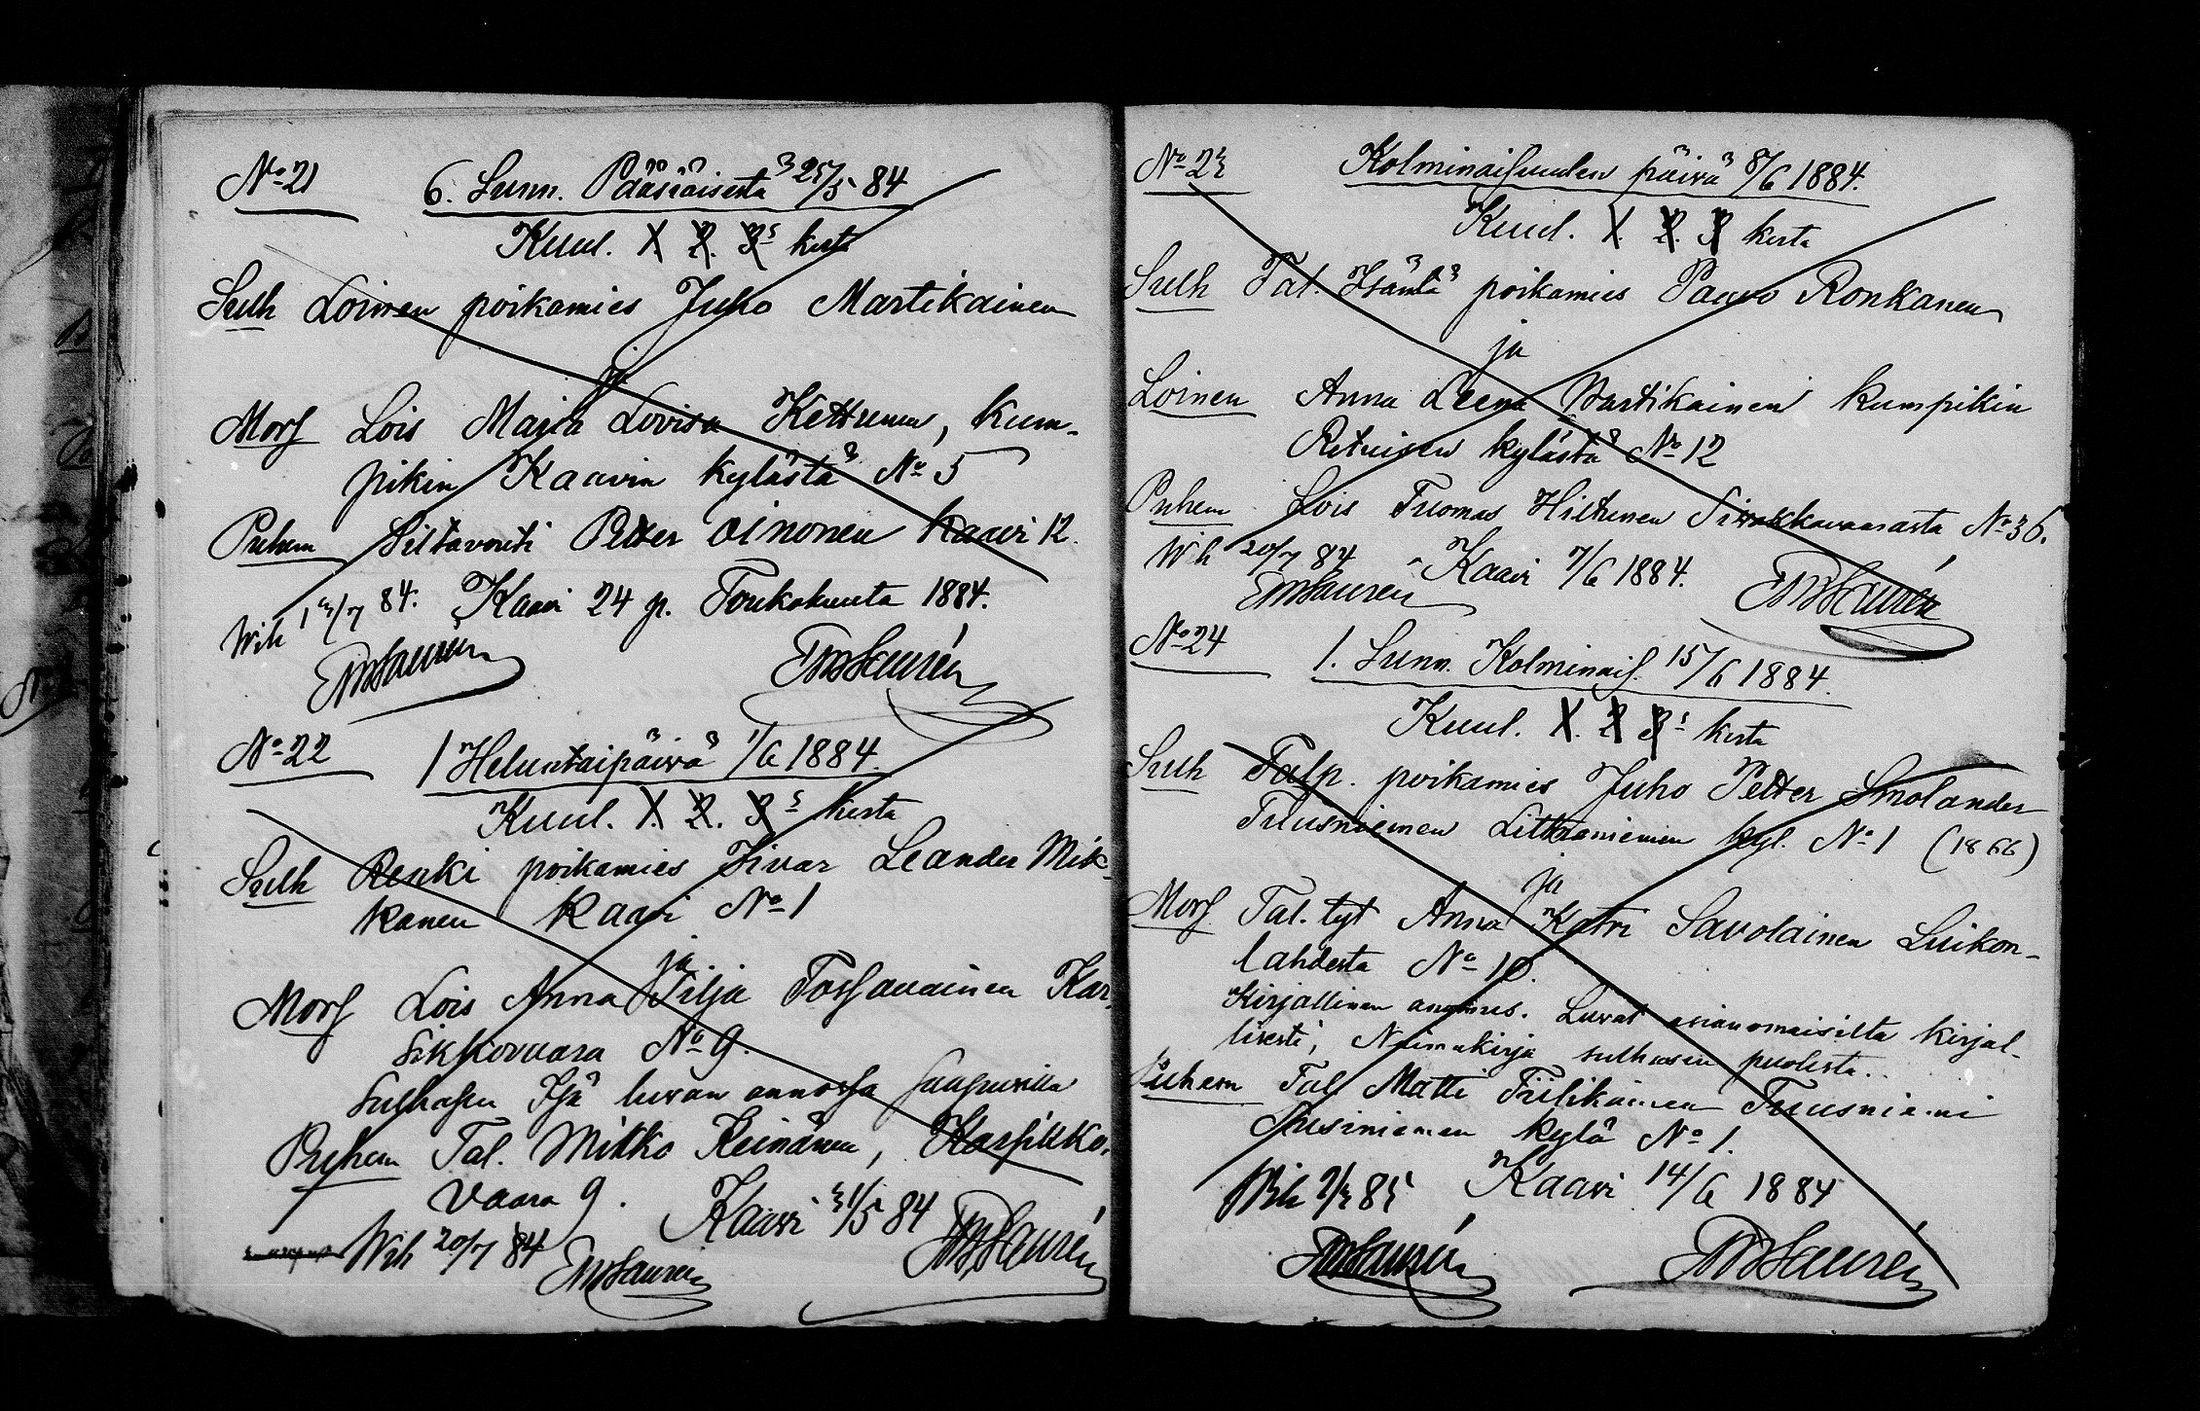 No 21
6. Sunn. Pääsiäisestä 25/5 84
Kuul. 1. 2. 3s kerta
Sulh Loinen poikamies Juho Martikainen
ja
Mors Lois Maija Lovisa Kettunen, kum-
pikin Kaavin kylästä No 5
Puhem Siltavouti Petter Oinonen Kaavi 12.
Wih 13/7 84. Kaavi 24 p. Toukokuuta 1884.
No 22
1 Heluntaipäivä 1/6 1884.
Kuul. 1. 2. 3s kerta
Sulh Renki poikamies Iivar Leander Mik-
kanen Kaavi No 1
ja
Mors Lois Anna Silja Tossavainen Kar-
sikkovaara No 9.
Sulhasen Isä luvan annossa saapuvilla
Puhem Tal. Mikko Keinänen, Karsikko-
vaara 9. Kaavi 31/5 84
Wih 20/7 84
No 23
Kolminaisuuden päivä 8/6 1884.
Kuul. 1. 2. 3 kerta
Sulh Tal. Isäntä poikamies Paavo Ronkanen
ja
Loinen Anna Leena Martikainen kumpikin
Retuisen kylästä No 12
Puhem Lois Tuomas Hiltunen Sivakkavaarasta No 36.
Wih 20/7 84 Kaavi 7/6 1884.
No 24
1. Sunn. Kolminais. 15/6 1884.
Kuul. 1. 2 3s kerta
Sulh Talp. poikamies Juho Petter Smolander
Tuusniemen Litmaniemen kyl. No 1 (1866)
ja
Mors Tal. tyt Anna Katri Savolainen Luikon-
lahdesta No 10.
Kirjallinen anomus. Luvat asianomaisilta kirjal-
lisesti, Naimakirja sulhasen puolesta.
Puhem Tal Matti Tiilikainen Tuusniemi
Susiniemen kylä No 1.
Wih 2/3 85 Kaavi 14/6 1884